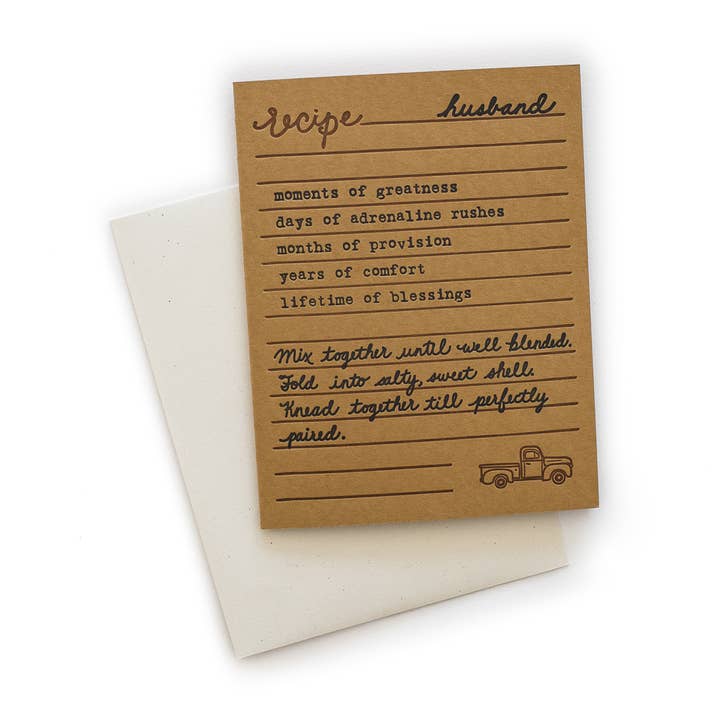 recipe husband
moments of greatness
days of adrenaline rushes
months of provision
years of comfort
lifetime of blessings
Mix together until well blended.
Fold into salty, sweet shell.
Knead together till perfectly
paired.